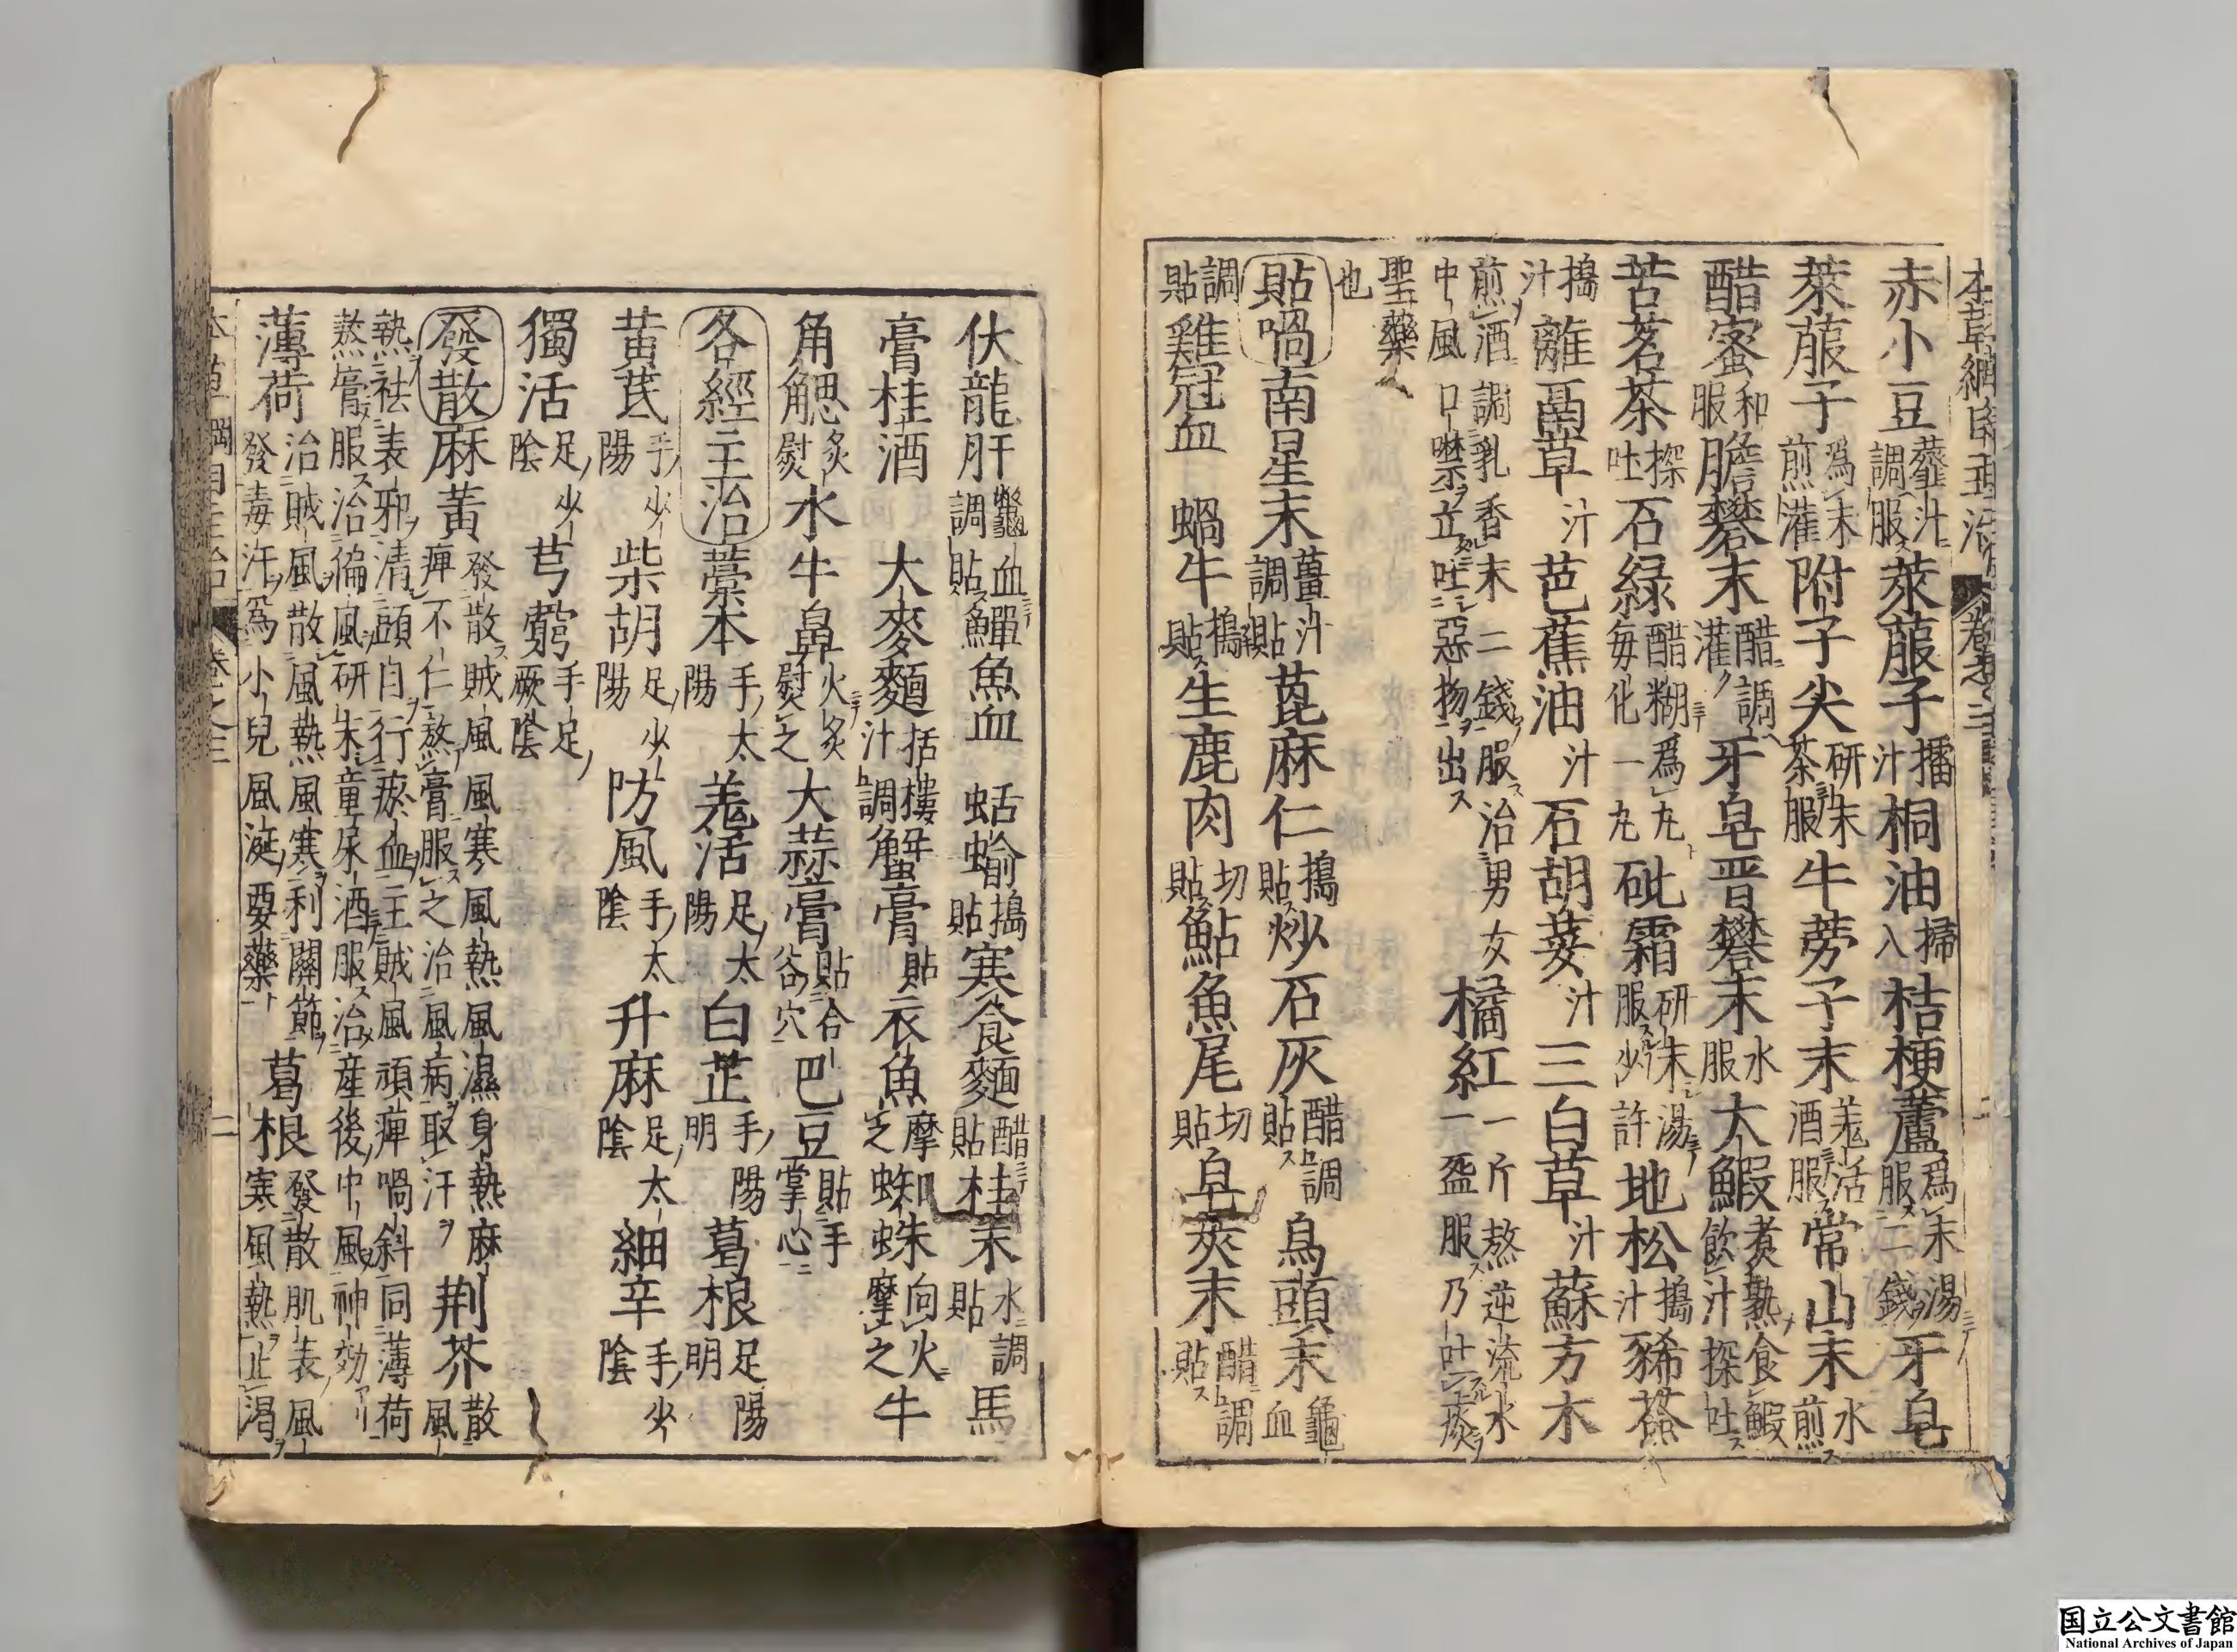 本草綱目主治 卷之三 二
赤小豆虀汁調服萊菔子擂汁桐油掃入桔梗蘆爲末湯服二錢牙皂
萊菔子爲末煎灌附子尖研末茶服牛蒡子末羌活酒服常山末水煎
醋蜜和服膽礬末醋調灌牙皂晋礬末水服大鰕煮熟食鰕飲汁探吐
苦茗茶探吐石緑醋糊爲丸每化一丸砒霜研末湯服少許地松搗汁豨薟
搗汁離鬲草汁芭蕉油汁石胡荽汁三白草汁蘇方木
煎酒調乳香末二錢服治男女中風口噤立吐惡物出橘紅一斤熬逆流水一盌服乃吐痰
聖藥也
貼喎南星末薑汁調貼蓖麻仁搗貼炒石灰醋調貼鳥頭末龜血
調貼雞冠血蝸牛搗貼生鹿肉切貼鮎魚尾切貼皂莢末醋調貼
伏龍肝鱉血調貼鱓魚血蛞蝓搗貼寒食麵醋貼桂末水調貼馬
膏桂酒大麥麵括樓汁調蟹膏貼衣魚摩之蜘蛛向火摩之牛
角䚡炙熨水牛鼻火炙熨之大蒜膏貼合谷穴巴豆貼手掌心
各經主治藁本手太陽羌活足太陽白芷手陽明葛根足陽明
黃芪手少陽柴胡足少陽防風手太陰升麻足太陰細辛手少陰
獨活足少陰芎藭手足厥陰
發散麻黃發散賊風風寒風熱風濕身熱麻痺不仁熬膏服之治風病取汗荊芥散風
熱祛表邪清頭目行瘀血主賊風頑痺喎斜同薄荷熬膏服治偏風研末童尿酒服治產後中風神効
薄荷治賊風散風熱風寒利關節發毒汗爲小兒風涎要藥葛根發散肌表風寒風熱止渴
本草綱目主治 卷之三 二
国立公文書館
National Archives of Japan